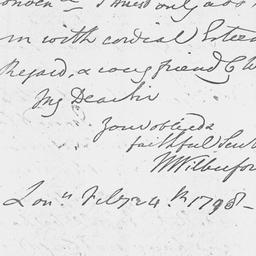 I must only add
m with cordial Esteem
Regard, & my friend
My Dear Sir
Your obliged &
faithful Serv
W Wilberfor
Lon.n Feby 24.th 1798 -